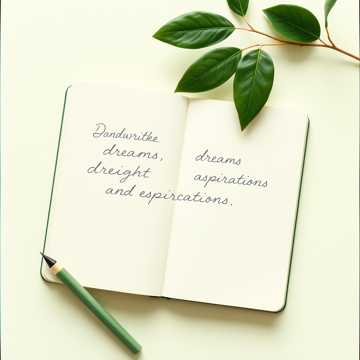 Dandwritke
dreams,
dreight
and espircations.
dreams
aspirations